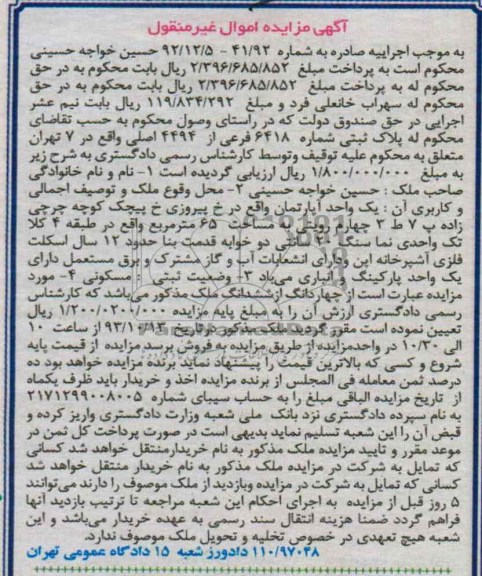 آگهی مزایده اموال غیرمنقول
به موجب اجراییه صادره به شماره ۴۱/۹۲ - ۹۲/۱۲/۵ حسین خواجه حسینی
محکوم است به پرداخت مبلغ ۲/۳۹۶/۶۸۵/۸۵۲ ریال بابت محکوم به در حق
محکوم له به پرداخت مبلغ ۲/۳۹۶/۶۸۵/۸۵۲ ریال بابت محکوم به در حق
محکوم له سهراب خانعلی فرد و مبلغ ۱۱۹/۸۳۴/۲۹۲ ریال بابت نیم عشر
اجرایی در حق صندوق دولت که در راستای وصول محکوم به حسب تقاضای
محکوم له پلاک ثبتی شماره ۶۴۱۸ فرعی از ۴۴۹۴ اصلی واقع در ۷ تهران
متعلق به محکوم علیه توقیف وتوسط کارشناس رسمی دادگستری به شرح زیر
به مبلغ ۱/۸۰۰/۰۰۰/۰۰۰ ریال ارزیابی گردیده است ۱- نام و نام خانوادگی
صاحب ملک : حسین خواجه حسینی ۲- محل وقوع ملک و توصیف اجمالی
و کاربری آن : یک واحد آپارتمان واقع در خ پیروزی خ پیچک کوچه چرچی
زاده پ ۷ ط ۳ چهارم رویتی به مساحت ۶۵ مترمربع واقع در طبقه ۴ کلا
تک واحدی نما سنگ دو خوابه قدمت بنا حدود ۱۲ سال اسکلت
فلزی آشپرخانه اپن ودارای انشعابات آب و گاز مشترک و برق مستعمل دارای
یک واحد پارکینگ و انباری می‌باد ۳- وضعیت ثبتی : مسکونی ۴- مورد
مزایده عبارت است از چهاردانگ ازششدانگ ملک مذکور می‌باشد که کارشناس
رسمی دادگستری ارزش آن را به مبلغ پایه مزایده ۱/۲۰۰/۰۲۰۰/۰۰۰ ریال
تعیین نموده است مقرر گردید ملک مذکور درتاریخ ۹۳/۱۰/۱۳ از ساعت ۱۰
الی ۱۰/۳۰ در واحدمزایده از طریق مزایده به فروش برسد مزایده از قیمت پایه
شروع و کسی که بالاترین قیمت را پیشنهاد نماید برنده مزایده خواهد بود ده
درصد ثمن معامله فی المجلس از برنده مزایده اخذ و خریدار باید ظرف یکماه
از تاریخ مزایده الباقی مبلغ را به حساب سیبای شماره ۲۱۷۱۲۹۹۰۰۸۰۰۵
به نام سپرده دادگستری نزد بانک ملی شعبه وزارت دادگستری واریز کرده و
قبض آن را این شعبه تسلیم نماید بدیهی است در صورت پرداخت کل ثمن در
موعد مقرر و تایید مزایده ملک مذکور به نام خریدارمنتقل خواهد شد کسانی
که تمایل به شرکت در مزایده ملک مذکور به نام خریدار منتقل خواهد شد
کسانی که تمایل به شرکت در مزایده وبازدید از ملک موصوف را دارند می‌توانند
۵ روز قبل از مزایده به اجرای احکام این شعبه مراجعه تا ترتیب بازدید آنها
فراهم گردد ضمنا هزینه انتقال سند رسمی به عهده خریدار می‌باشد و این
شعبه هیچ تعهدی در خصوص تخلیه و تحویل ملک موصوف ندارد.
۱۱۰/۹۷۰۳۸ دادورز شعبه ۱۵ دادگاه عمومی تهران